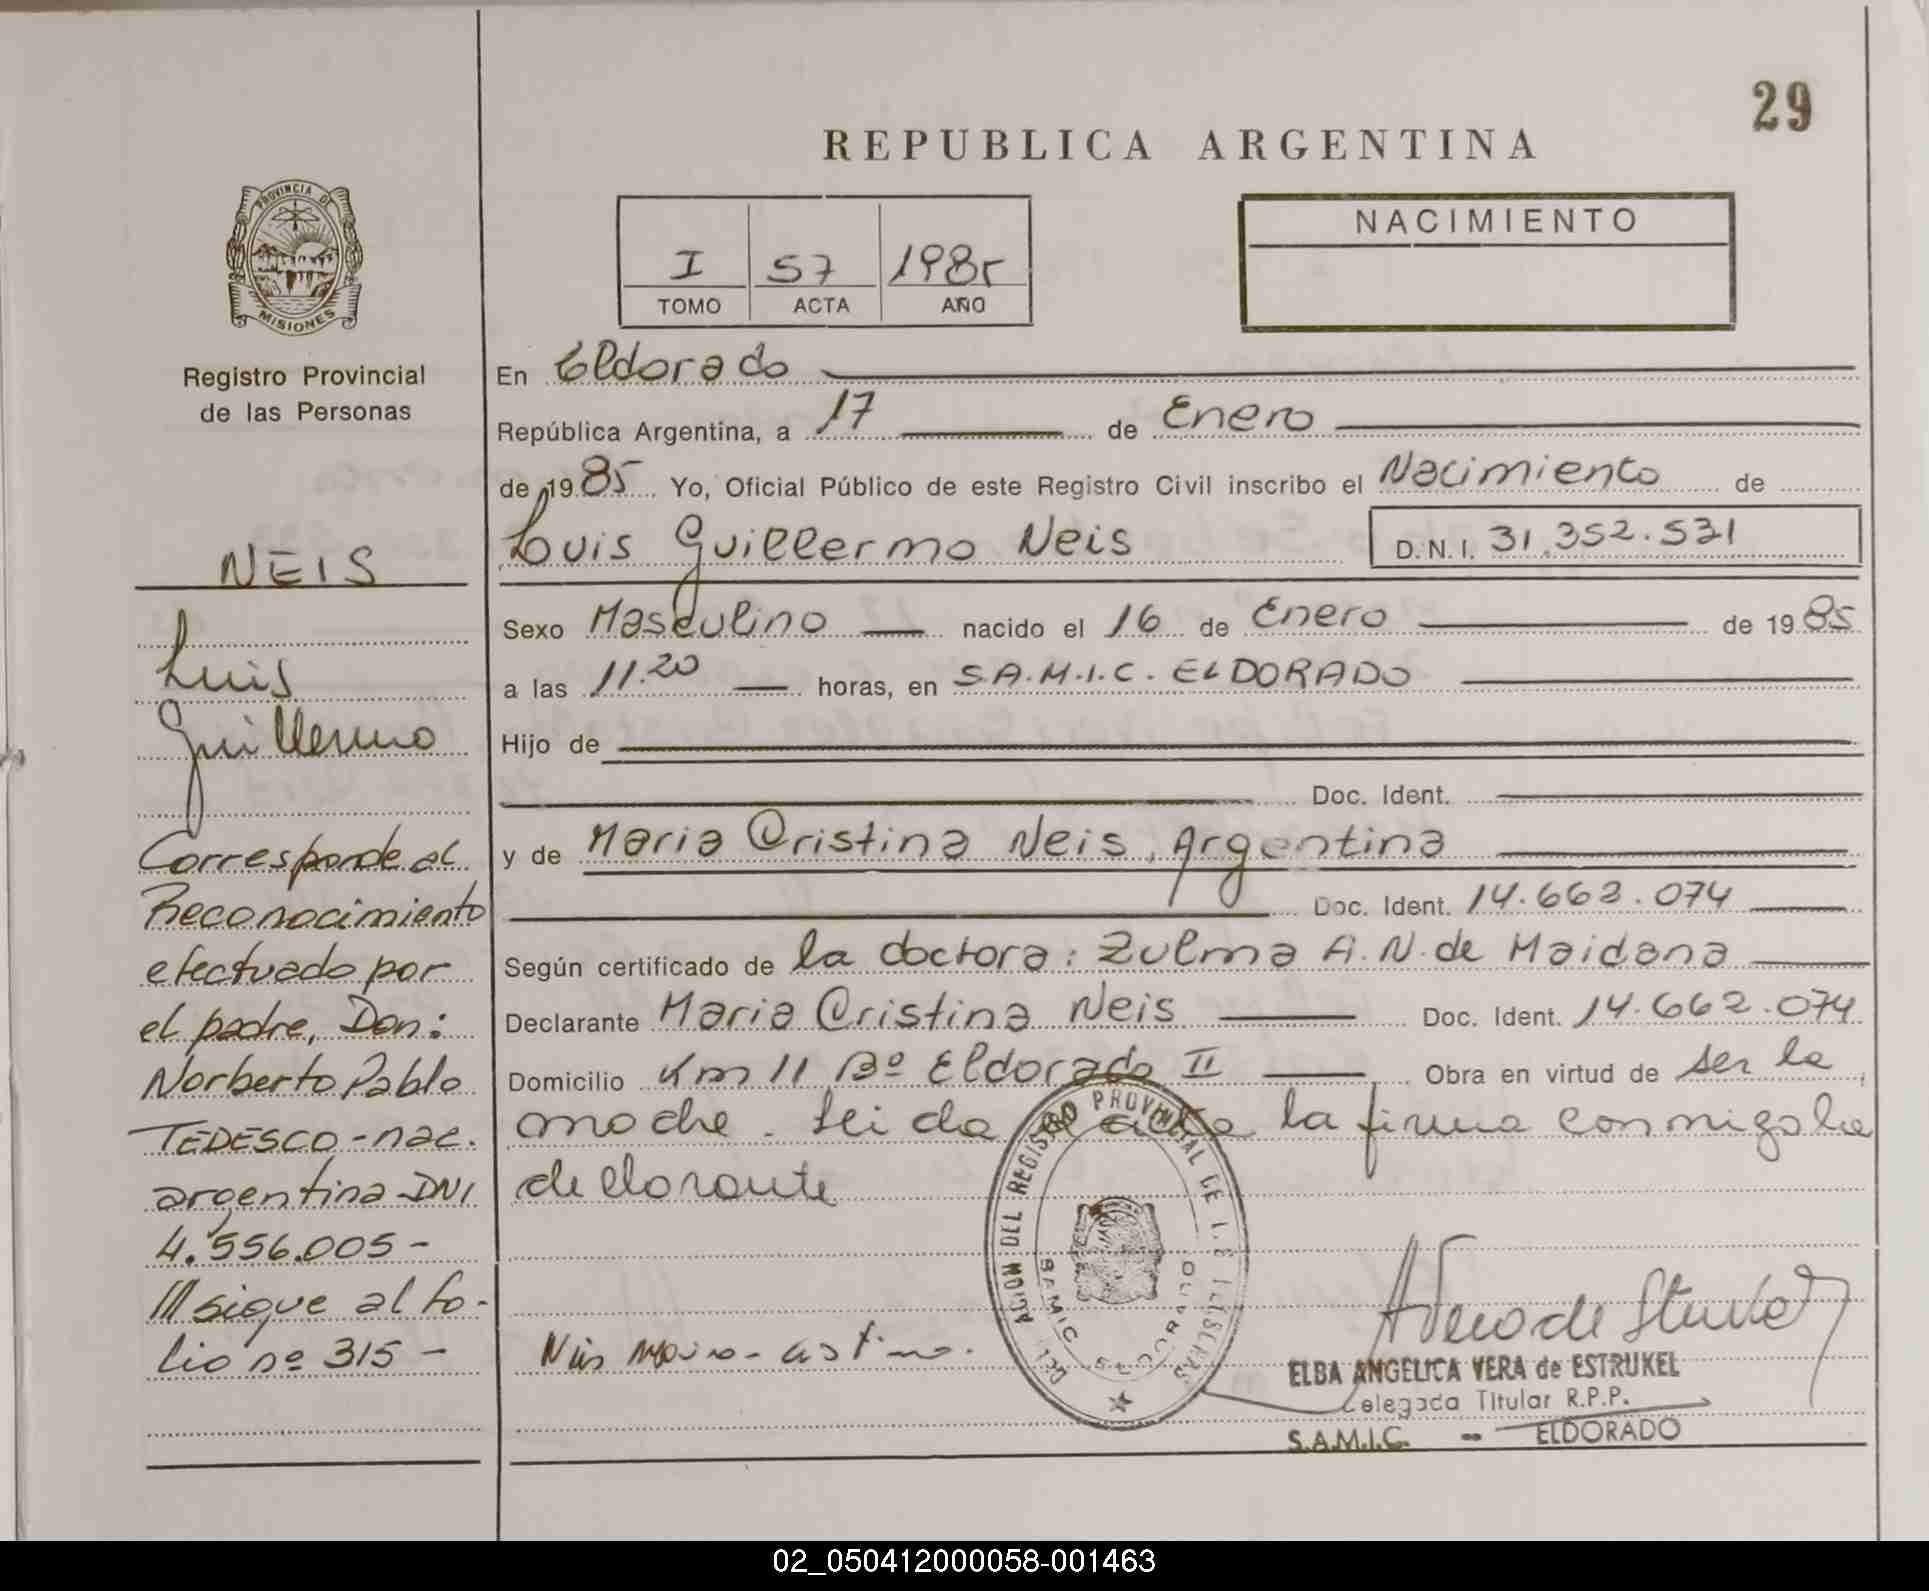 29
REPUBLICA ARGENTINA
PROVINCIA DE
MISIONES
Registro Provincial
de las Personas
I 57 1985
TOMO ACTA AÑO
NACIMIENTO
En Eldorado
República Argentina, a 17 de Enero
de 1985 Yo, Oficial Público de este Registro Civil inscribo el Nacimiento de
Luis Guillermo Neis D.N.I. 31.352.531
Sexo Masculino nacido el 16 de Enero de 1985
a las 11.20 horas, en S.A.M.I.C. ELDORADO
Hijo de
Doc. Ident.
y de Maria Cristina Neis, Argentina
Doc. Ident. 14.662.074
Según certificado de la doctora: Zulma A. N. de Maidana
Declarante Maria Cristina Neis Doc. Ident. 14.662.074
Domicilio Km 11 Bº Eldorado II Obra en virtud de ser la
madre. Leida el acta la firma conmigo la
declarante
NEIS
Luis
Guillermo
Corresponde al
Reconocimiento
efectuado por
el padre, Don:
Norberto Pablo
TEDESCO - nac.
argentina DNI
4.556.005 -
///sigue al fo-
lio nº 315 -
DEL REGISTRO PROVINCIAL DE
SAMIC ELDORADO
ELBA ANGELICA VERA de ESTRUKEL
Delegada Titular R.P.P.
S.A.M.I.C. - ELDORADO
02_050412000058-001463